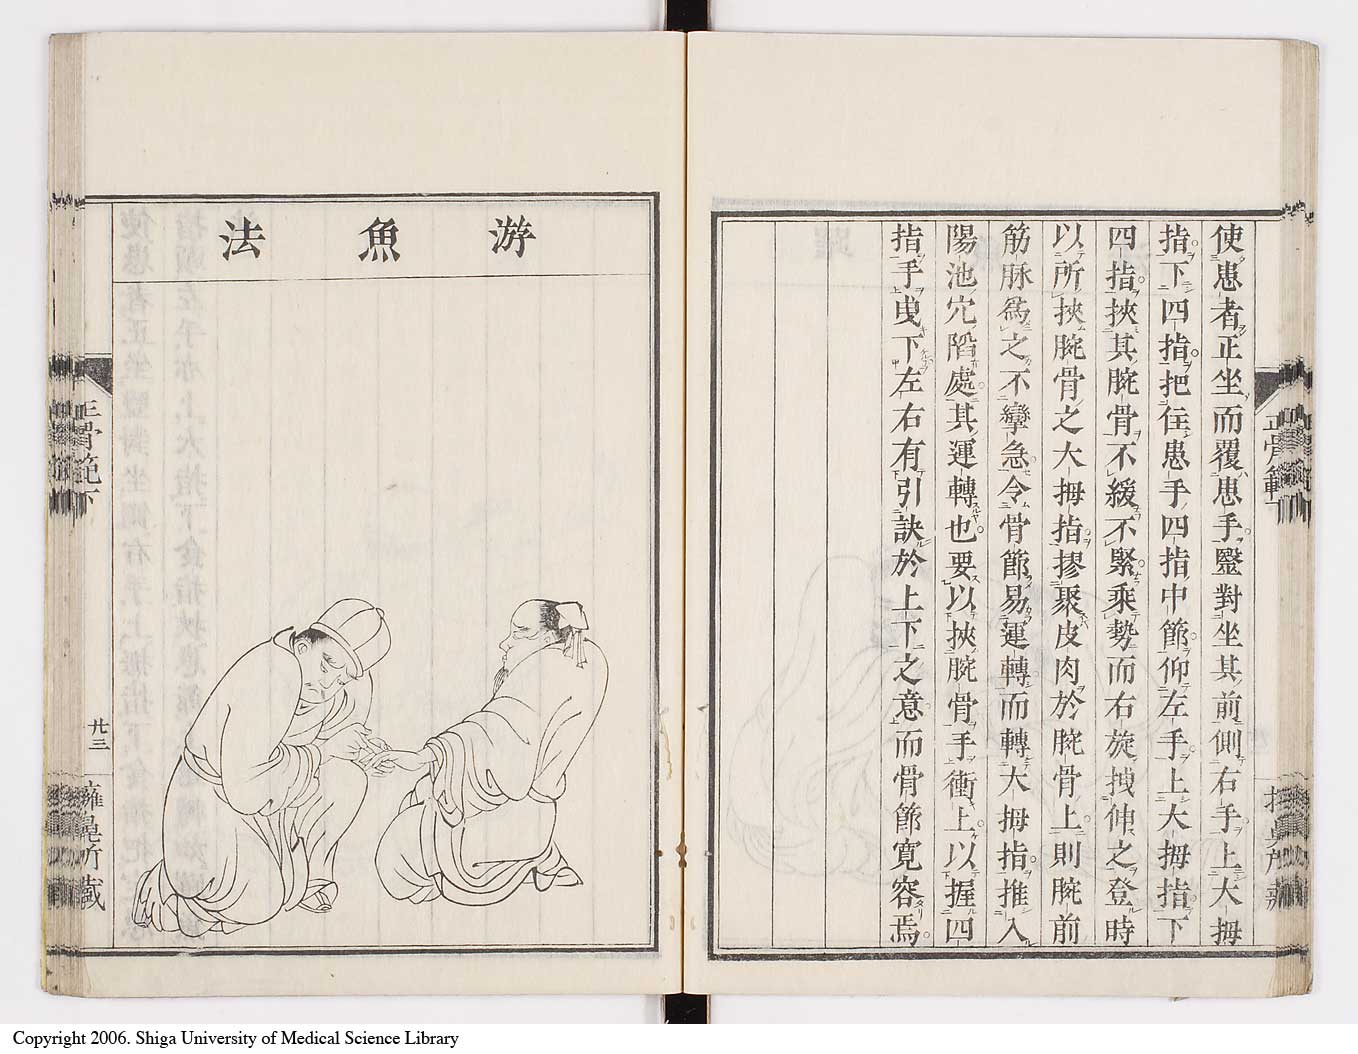 使患者正坐而覆患手毉對坐其前側右手上大拇
指下四指把住患手四指中節仰左手上大拇指下
四指挾其腕骨不緩不緊乘勢而右旋拽伸之登時
以所挾腕骨之大拇指摎聚皮肉於腕骨上則腕前
筋脉爲之不攣急令骨節易運轉而轉大拇指推入
陽池穴陷處其運轉也要以挾腕骨手衝上以握四
指手曳下左右有引訣於上下之意而骨節寛容焉
游魚法
正骨範下
廿三
Copyright 2006. Shiga University of Medical Science Library